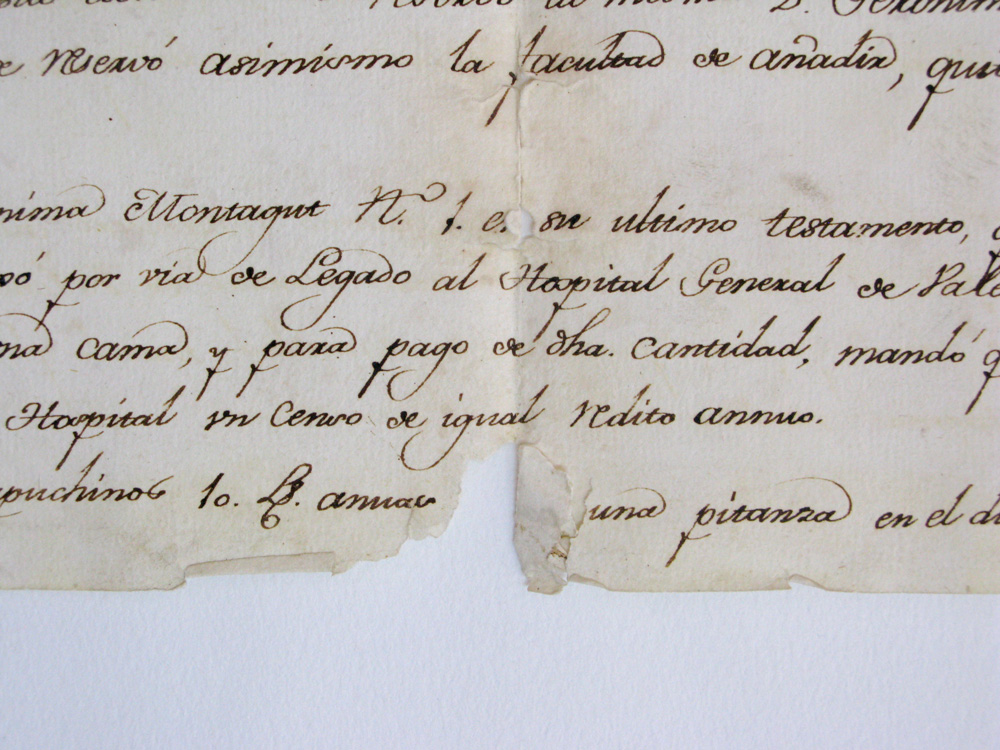 D. Geronim
e reservó asimismo la facultad de añadir, qui
nima Montagut N.º 1. e. su ultimo testamento,
vó por via de Legado al Hospital General de Vale
na cama, y para pago de dha. cantidad, mandó q
Hospital vn Censo de igual redito annuo.
apuchinos 10. L. anuas una pitanza en el di